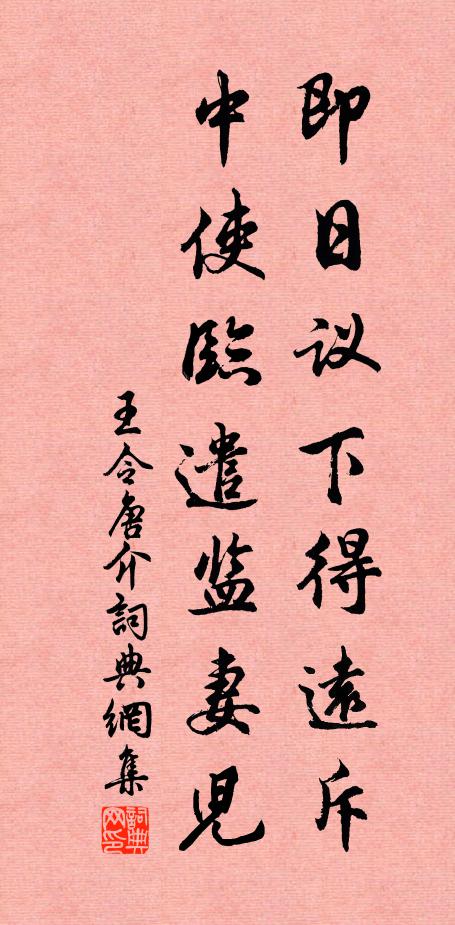 即日议下得遠斥
中使臨遣监妻児
王令唐介詞典網集
詞典网印